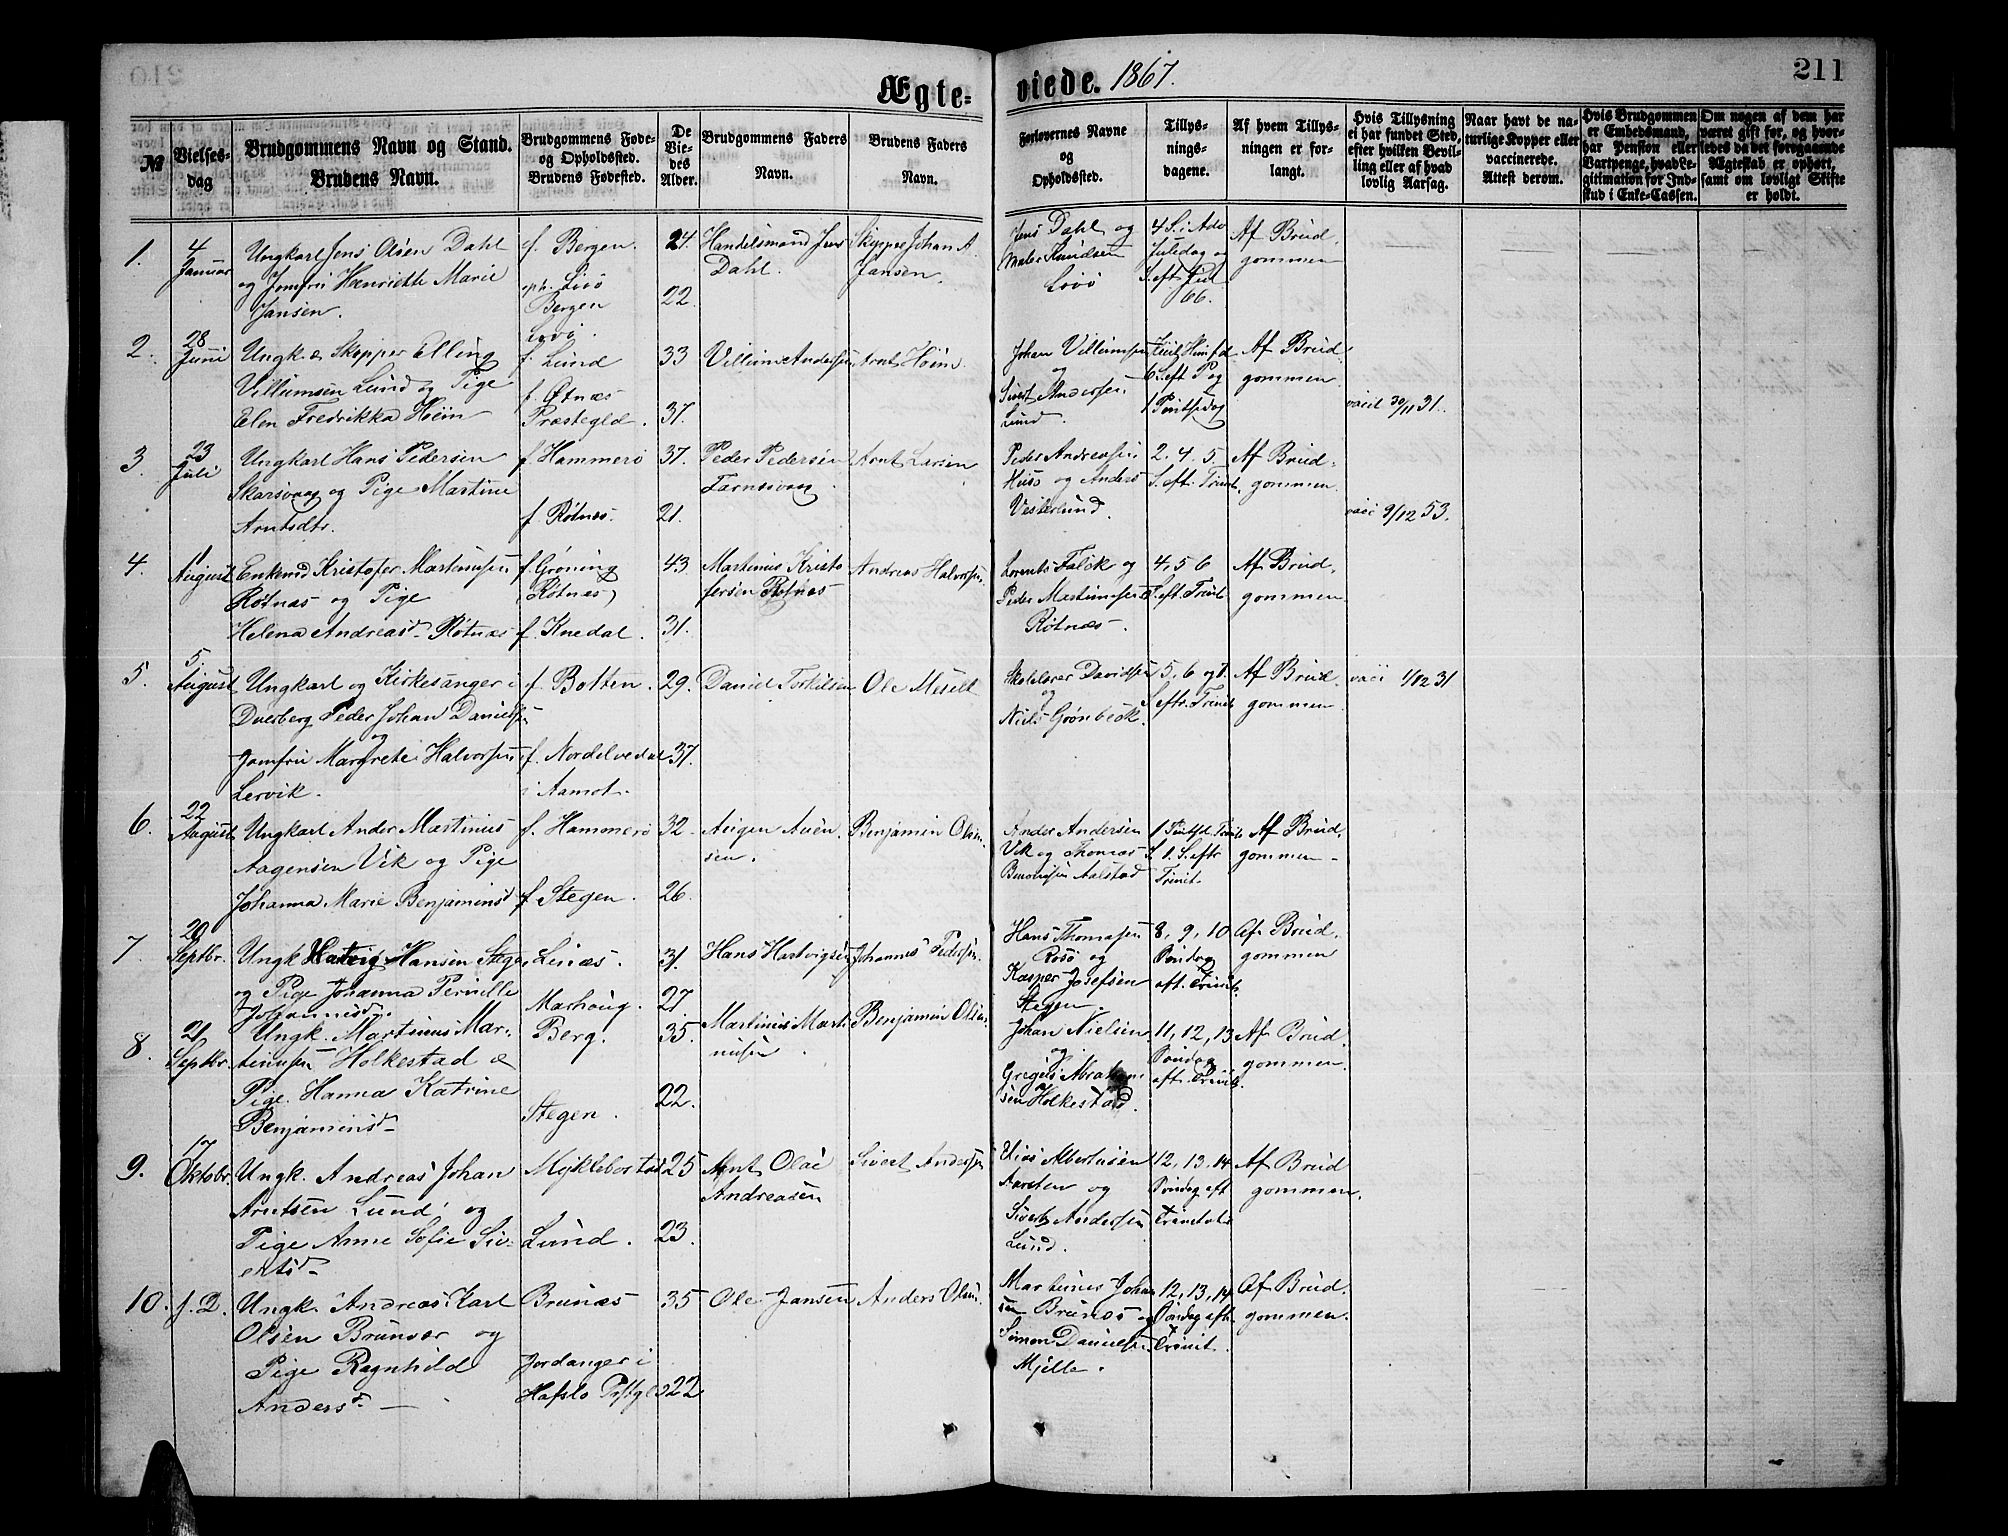 210
211
Ægte-
viede. 1867.
№
Vielses-
dag
Brudgommens Navn og Stand.
Brudens Navn.
Brudgommens Føde-
og Opholdssted.
Brudens Fødested.
De
Vie-
des
Alder.
Brudgommens Faders
Navn.
Brudens Faders
Navn.
Forlovernes Navne
og
Opholdssted.
Tillys-
nings-
dagene.
Af hvem Tillys-
ningen er for-
langt.
Hvis Tillysning
ei har fundet Sted,
efter hvilken Bevil-
ling eller af hvad
lovlig Aarsag.
Naar havt de na-
turlige Kopper eller
vaccinerede.
Attest derom.
Hvis Brudgommen
er Embedsmand,
har Pension eller
Vartpenge, hvad Le-
gitimation for Ind-
skud i Enke-Cassen.
Om nogen af dem har
været gift før, og hvor-
ledes da det foregaaende
Ægteskab er ophørt,
samt om lovligt Skifte
er holdt.
1.
4
Januar
Ungkarl Jens Olsen Dahl
og Jomfru Henriette Marie
Jansen.
f. Bergen.
oph. Lovø
Bergen
Lovø.
24.
22.
Handelsmand Jens
Dahl.
Skipper Johan A.
Jansen.
Jens Dahl og
Knudsen
Lovø
4 S. i Adv
Juledag og
S. eft. Jul
66.
Af Brud,
gommen
2.
28
Juni
Ungk. & Skipper Elling
Villumsen Lund og Pige
Elen Fredrikka Hoein
f. Lund
f. Øtnæs
Præstegld.
33
37.
Villum Andersen
Arnt Hoein.
Johan Villumsen
og
Sivert Andersen
Lund.
6 S. eft P og
1 Pintsedag
Af Brud,
gommen
vacil 30/11 31.
3.
23
Juli
Ungkarl Hans Pedersen
Skarsvaag og Pige Martine
Arntsdtr.
f. Hammerø
f. Røtnes.
37.
21.
Peder Pedersen
Tarnsvaag
Arnt Larsen
Peder Andreasen
Husø og Anders
Vesterlund.
2. 4. 5.
S. eft. Trinit.
Af Brud,
gommen.
vacc 9/12 53.
4.
1
August
Enkemd Kristofer Martinusen
Røtnæs og Pige
Helena Andreasd. Røtnæs
f. Grøning
(Røtnes)
f. Knedal.
43
31.
Martinus Kristo
fersen Røtnæs
Andreas Halvorsen.
Lorents Falck og
Peder Martinusen
Røtnæs.
4, 5 6
S. eft. Trinit
Af Brud,
gommen
5.
5.
August
Ungkarl og Kirkesanger i
Dverberg Peder Johan Danielsen
og
Jomfru Margrete Halvorsen
Lervik.
f. Botten.
f. Nordelvedal
i Aamot.
29.
37.
Daniel Torkilsen
Ole Messelt
Skolelærer Davidsen
og
Niels Grønbeck.
5, 6 og 7.
S eftr. Trinit
Af Brud,
gommen
vacc 1/12 31
6.
22
August
Ungkarl Ander Martinus
Aagensen Vik og Pige
Johanna Marie Benjaminsd
f. Hammerø
f. Stegen.
32.
26.
sen.
Benjamin Olsen.
Ander Andersen
Vik og Thomas
Aalstad
1 Pintsd. Trinit
& 1. S. eftr
Trinit.
Af Brud,
gommen.
7.
20
Septbr.
Ungk. Hartvig Hansen Stegen
og Pige Johanna Pernille
Johannisd.
Linæs.
Marhaug.
31.
27.
Hans Hartvigsen
Johannes Pedersen.
Hans Thomasen
Rosø og
Kasper Josefsen
Stegen.
8, 9, 10
Søndag
eft. Trinit.
Af Brud,
gommen
8.
21
Septbr.
Ungk. Martinus Mar-
tinusen Holkestad &
Pige Hanna Katrine
Benjaminsd.
Berg.
Stegen.
35.
22.
Martinus Marti
nusen
Benjamin Olsen.
Johan Nielsen
og
Gregers Abraham
sen Holkestad.
11, 12, 13
Søndag
eft. Trinit.
Af Brud,
gommen.
9.
17
Oktobr.
Ungk. Andreas Johan
Arntsen Lund og
Pige Anne Sofie Siv-
ertsd.
Myklebostad
Lund.
25
23.
Arnt Olai
Andreasen
Sivert Andersen
Albertusen
Aarsten og
Sivert Andersen
Lund.
12, 13, 14
Søndag eft
Trinitatis
Af Brud
gommen.
10.
s. D.
Ungk. Andreas Karl
Olsen Brunæs og
Pige Ragnhild
Andersd.
Brunæs
Jordanger i
Hafslo Prstgld
35
22
Ole Jansen
Anders Olsen.
Martinus Johan
sen Brunæs og
Simon Danielsen
Mjelle.
12, 13, 14
Søndag eft.
Trinit.
Af Brud,
gommen.